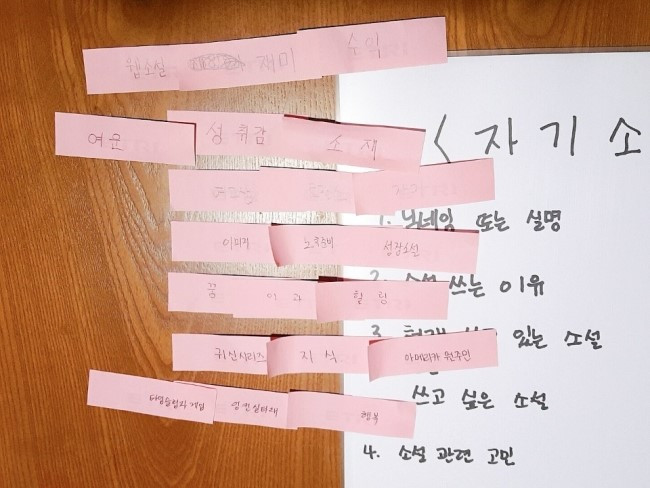 웹소설 재미 수익
여운 성취감 소재
이미지 노후준비 성장소설
꿈 여과 힐링
귀신시리즈 지식 아메리카 원주민
행복
< 자 기 소
1. 닉네임 또는 실명
2. 소설 쓰는 이유
3. 현재 쓰고 있는 소설
쓰고 싶은 소설
4. 소설 관련 고민